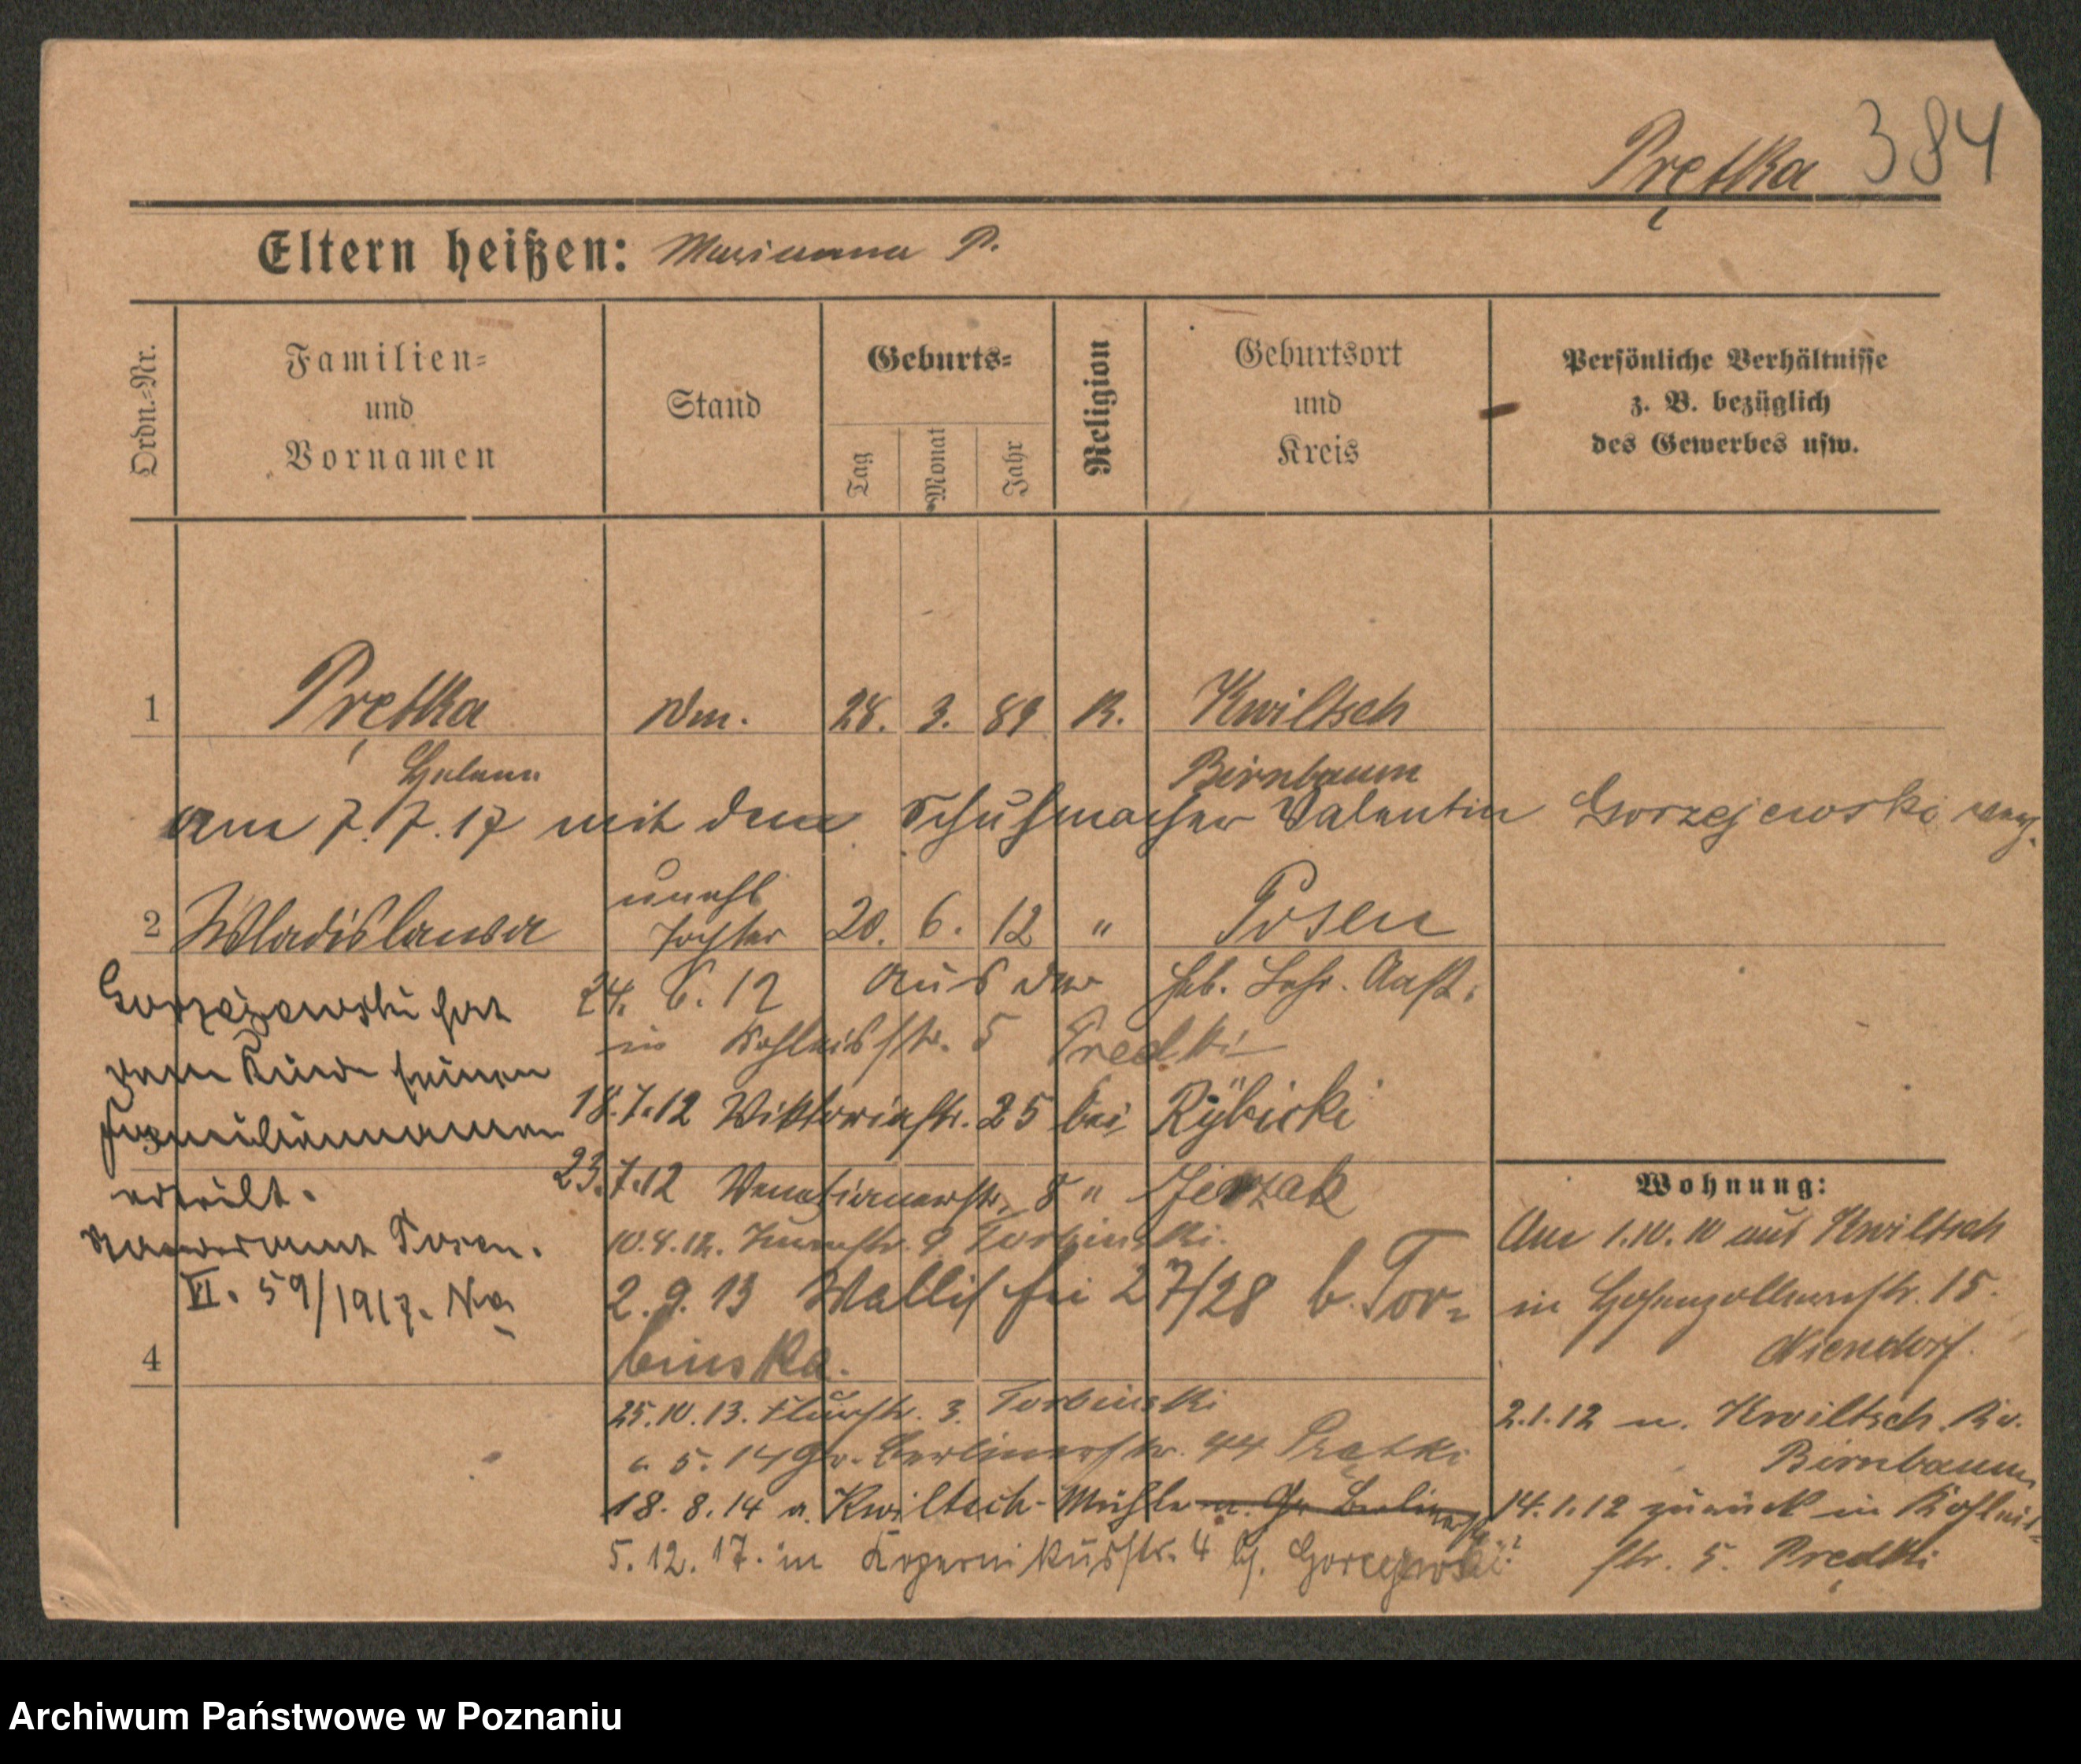 Prętka 384
Eltern heißen: Marianna P.
Ordn.-Nr.
Familien-
und
Vornamen
Stand
Geburts-
Tag
Monat
Jahr
Religion
Geburtsort
und
Kreis
Persönliche Verhältnisse
z. B. bezüglich
des Gewerbes usw.
1 Prętka 28. 3. 89 R. Kwiltsch
Helene Birnbaum
am 7.7.17 mit dem Schuhmacher Valentin Gorzejewski verh.
unehl
2 Wladislawa Tochter 20. 6. 12 " Posen
24. 6. 12 aus der Heb. Lehr. Anst.
in Kohleisstr. 5 Predki
18.7.12 Viktoriastr. 25 bei Rybicki
23.7.12 Venetianerstr. 8 " Jerzak
Gorzejewski hat
dem Kinde seinen
Familiennamen
erteilt.
Standesamt Posen.
VI. 59/1917.
2.9.13 Wallischei 27/28 b. Tor-
binska.
4
25.10.13. Flurstr. 3. Torbinski
5. 14 Gr. Berlinerstr. 44 Prętki
18. 8. 14 n. Kwiltsch-Mühle n. Gr. Berlinerstr.
5. 12. 17. in Kopernikusstr. 4 b. Gorzejewski
Wohnung:
Am 1.10.10 aus Kwiltsch
in Hohenzollernstr. 15.
Niendorf.
2.1.12 n. Kwiltsch Kr.
Birnbaum
14.1.12 zurück in Kohleis-
str. 5. Prędki
Archiwum Państwowe w Poznaniu